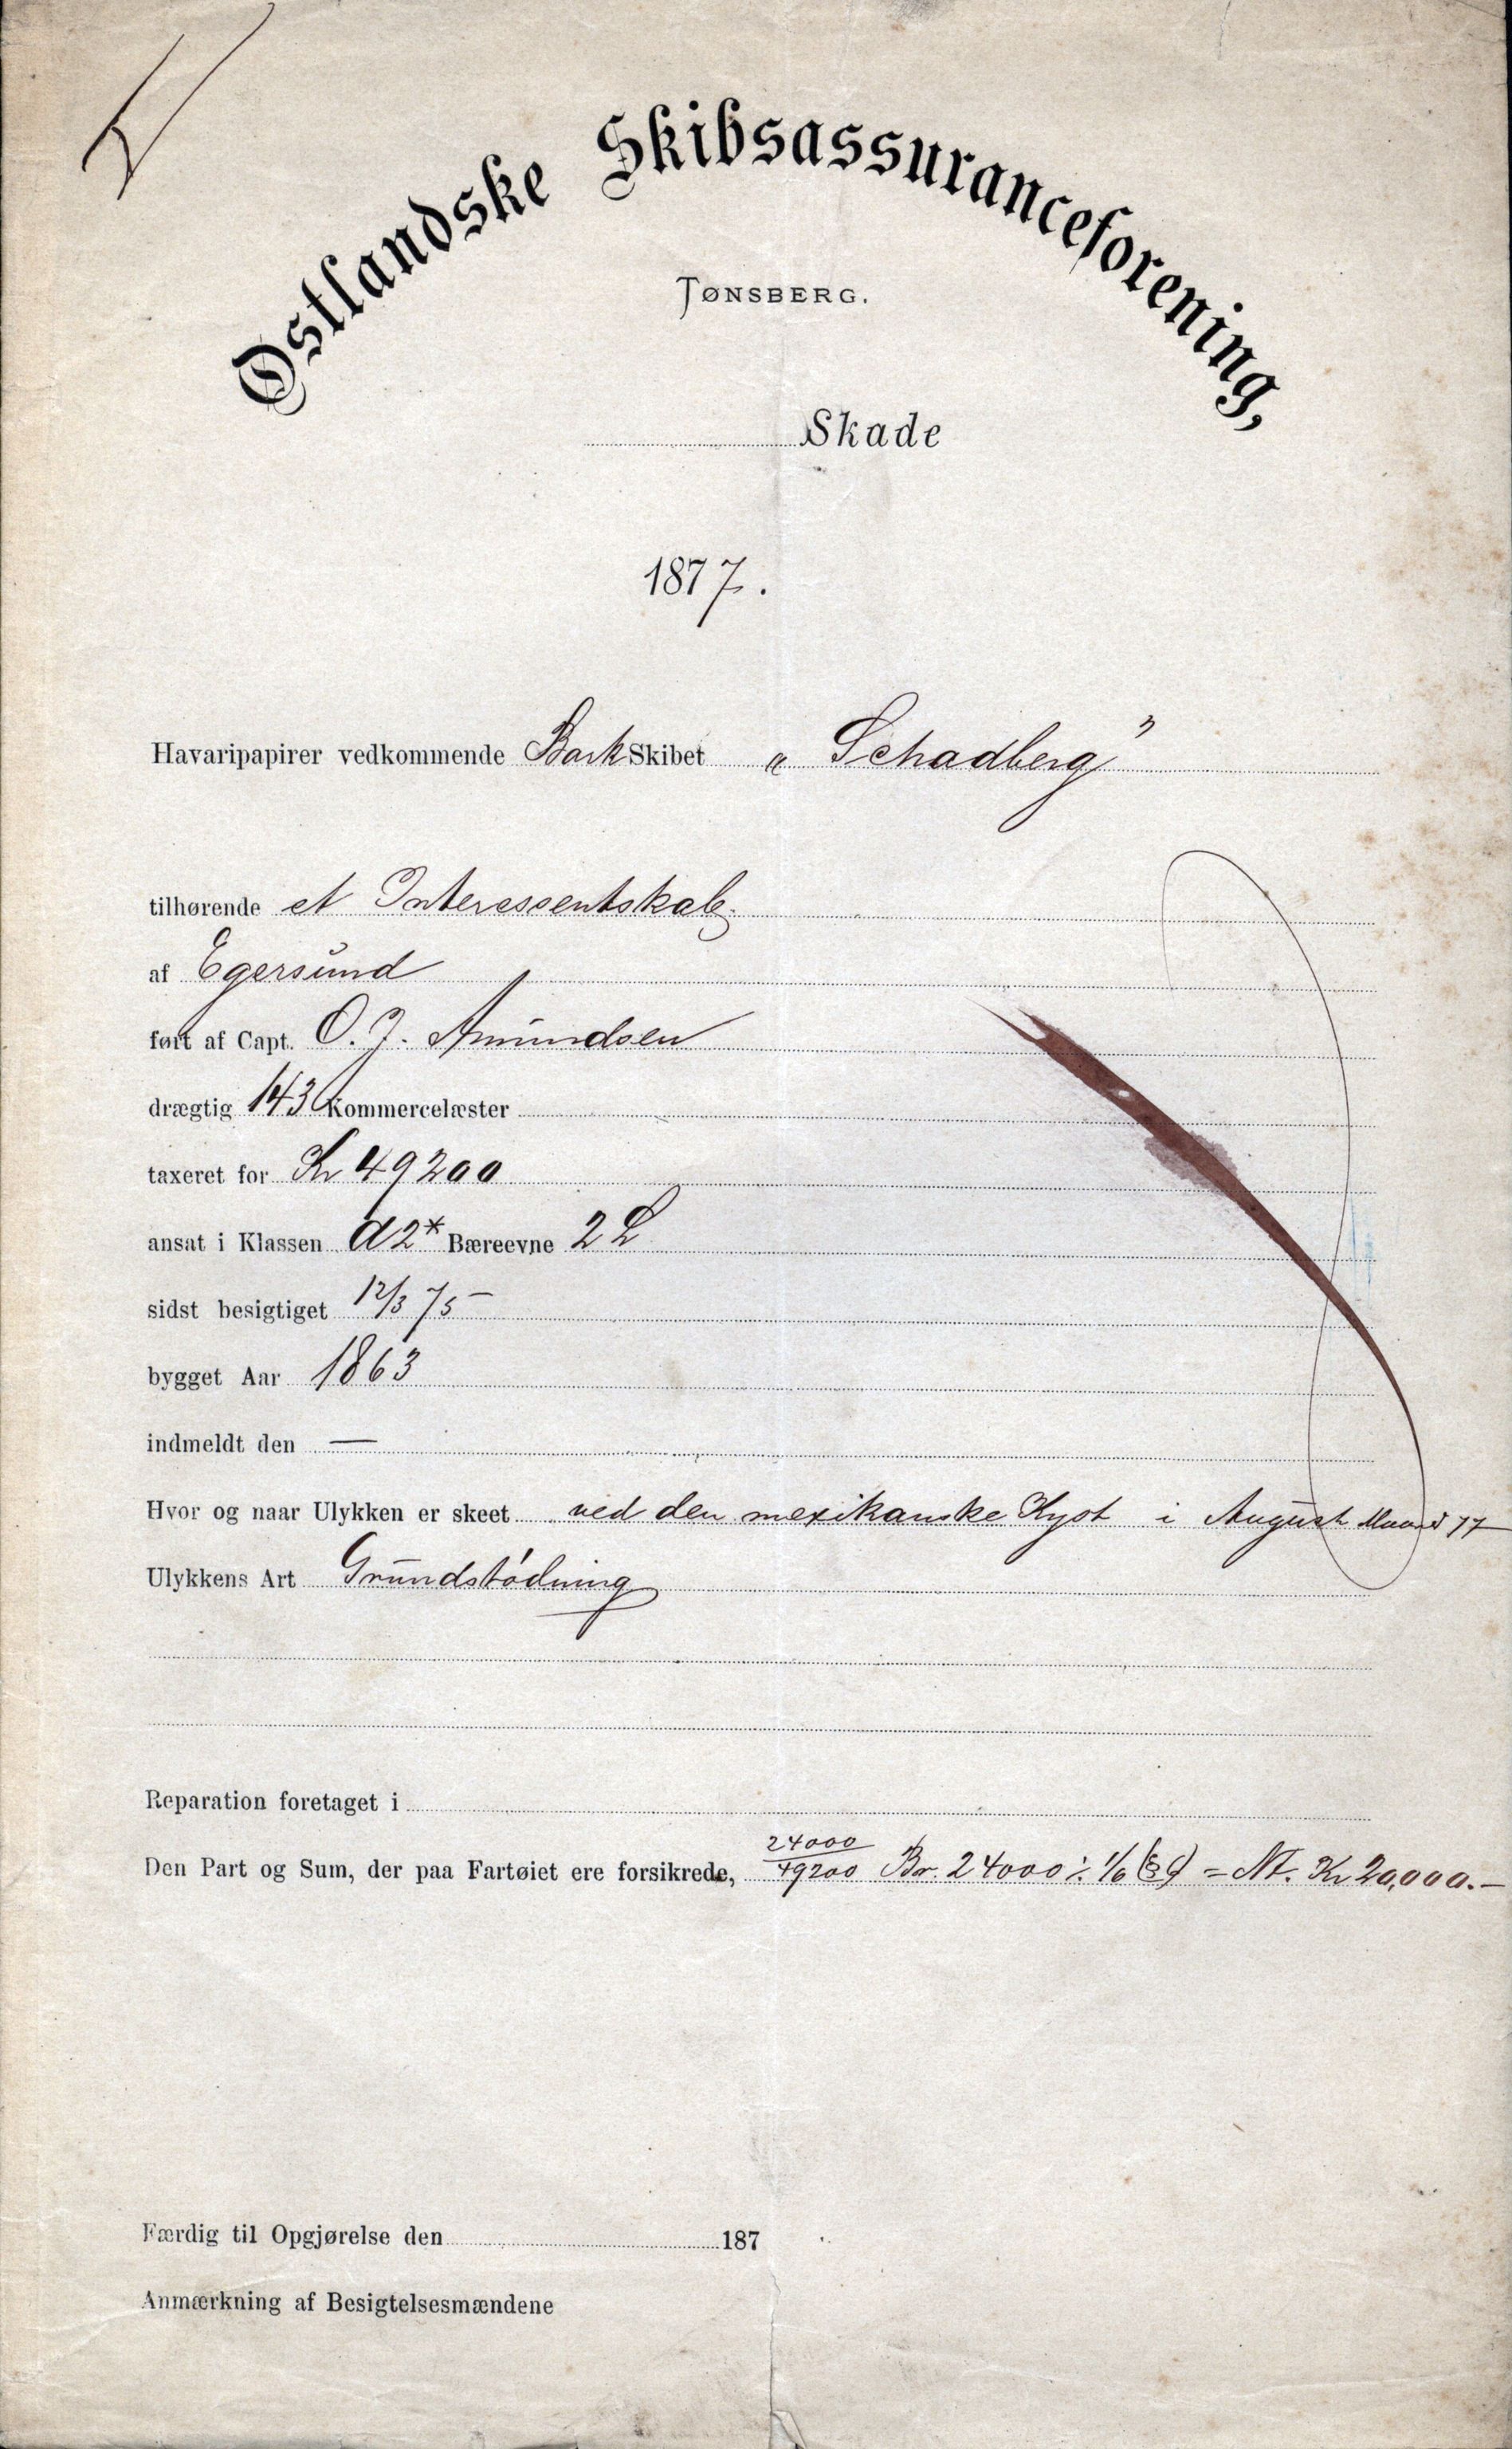 Østlandske Skibsassuranceforening,
TØNSBERG.
Skade
1877.
Havaripapirer vedkommende Bark Skibet „Schadberg”
tilhørende et Interessentskab.
af Egersund
ført af Capt. O. J. Amundsen
drægtig 143 Kommercelæster
taxeret for Kr 49200
ansat i Klassen A2* Bæreevne 2 L
sidst besigtiget 12/3 75
bygget Aar 1863
indmeldt den —
Hvor og naar Ulykken er skeet ved den mexikanske Kyst i August Maaned 77
Ulykkens Art Grundstødning
Reparation foretaget i
Den Part og Sum, der paa Fartøiet ere forsikrede, 24000/49200 Br. 24000 ÷ 1/6 = Nt. Kr 20,000.—
Færdig til Opgjørelse den 187
Anmærkning af Besigtelsesmændene